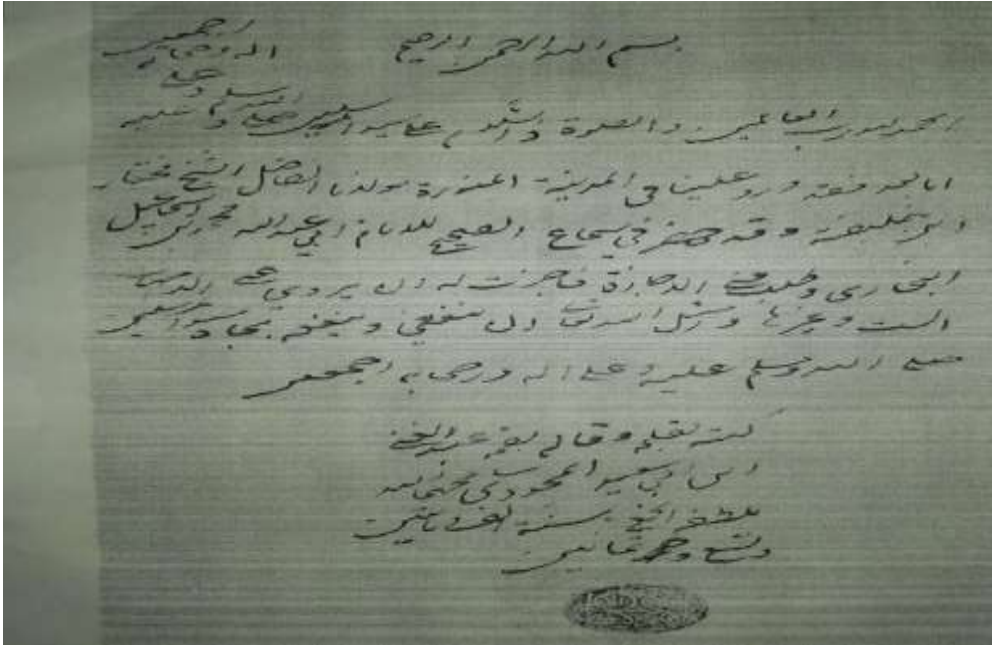 بسم الله الرحمن الرحيم
الحمد لله رب العالمين والصلوة والسلام على سيد المرسلين صلى الله وسلم عليه
وعلى
اله وصحابه
اجمعين
اما بعد فقد ورد علينا في المدينة المنورة مولانا الفاضل الشيخ مختار
ابن وقد حضر في سماع الصحيح للامام ابي عبد الله محمد ابن اسماعيل
البخارى وطلب مني الاجازة فاجزت له ان يروي عني
الست وغيرها الله ان ينفعني وينفعه بجاه سيد المرسلين
صلى الله وسلم عليه وعلى اله وصحابه اجمعين
كتبه بقلمه وقاله بفمه عبد الغني
ابن ابي سعيد المجددي
بلطفه الخفي سنة الف ومأتين
وتسع وثمانين